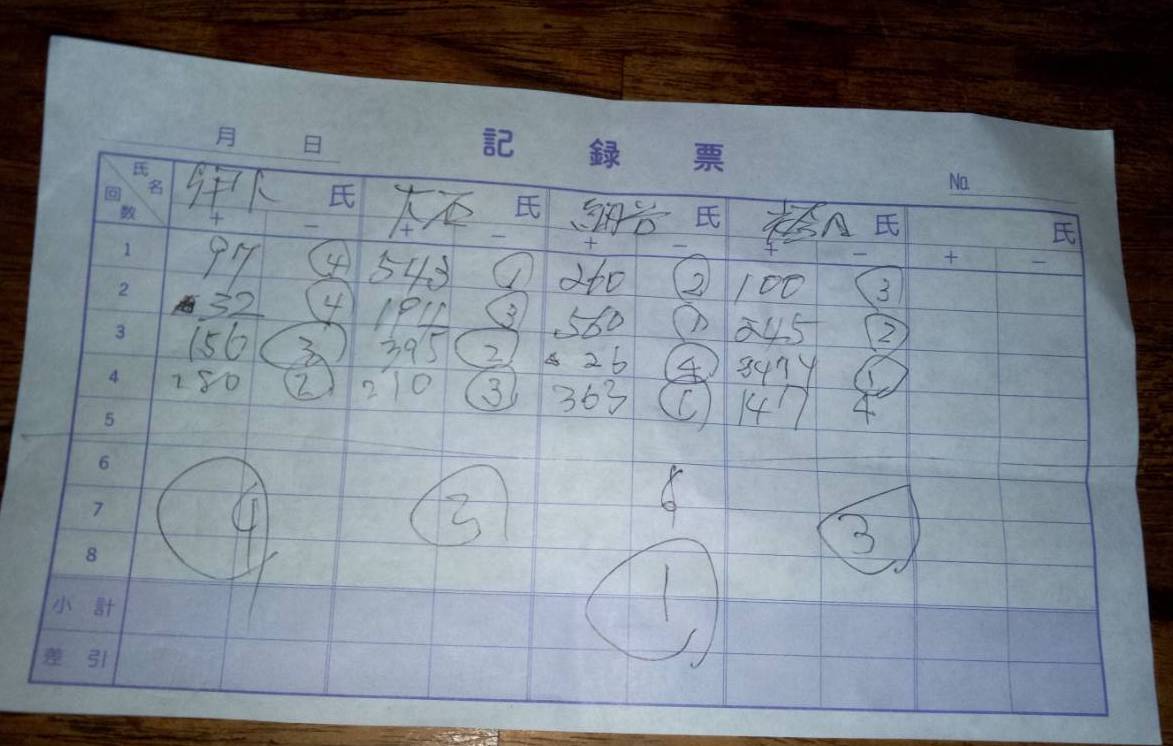 月 日 記 録 票 No.
氏名 回数 氏 大石 氏 氏 氏 氏
+ − + − + − + − + −
1 97 ④ 543 ① 260 ② 100 ③
2 32 ④ ③ 560 ① 245 ②
3 156 ③ 395 ② 26 ④ ①
4 280 ② 210 ③ 363 ① 147 4
5
6
7 4 3 3
8 1
小計
差引